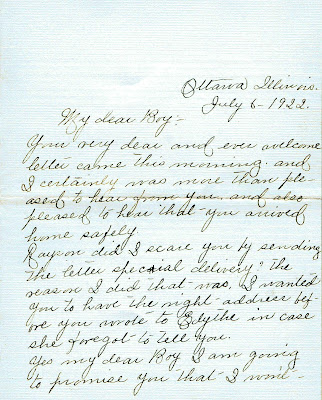 Ottawa Illinois.
July 6-1922.
My dear Boy:-
Your very dear and ever welcome
letter came this morning and
I certainly was more than ple-
ased to hear from you and also
pleased to hear that you arrived
home safely
did I scare you by sending
the letter special delivery? the
reason I did that was, I wanted
you to have the right address bef-
ore you wrote to Edythe in case
she forgot to tell you.
Yes my dear Boy I am going
to promise you that I won't